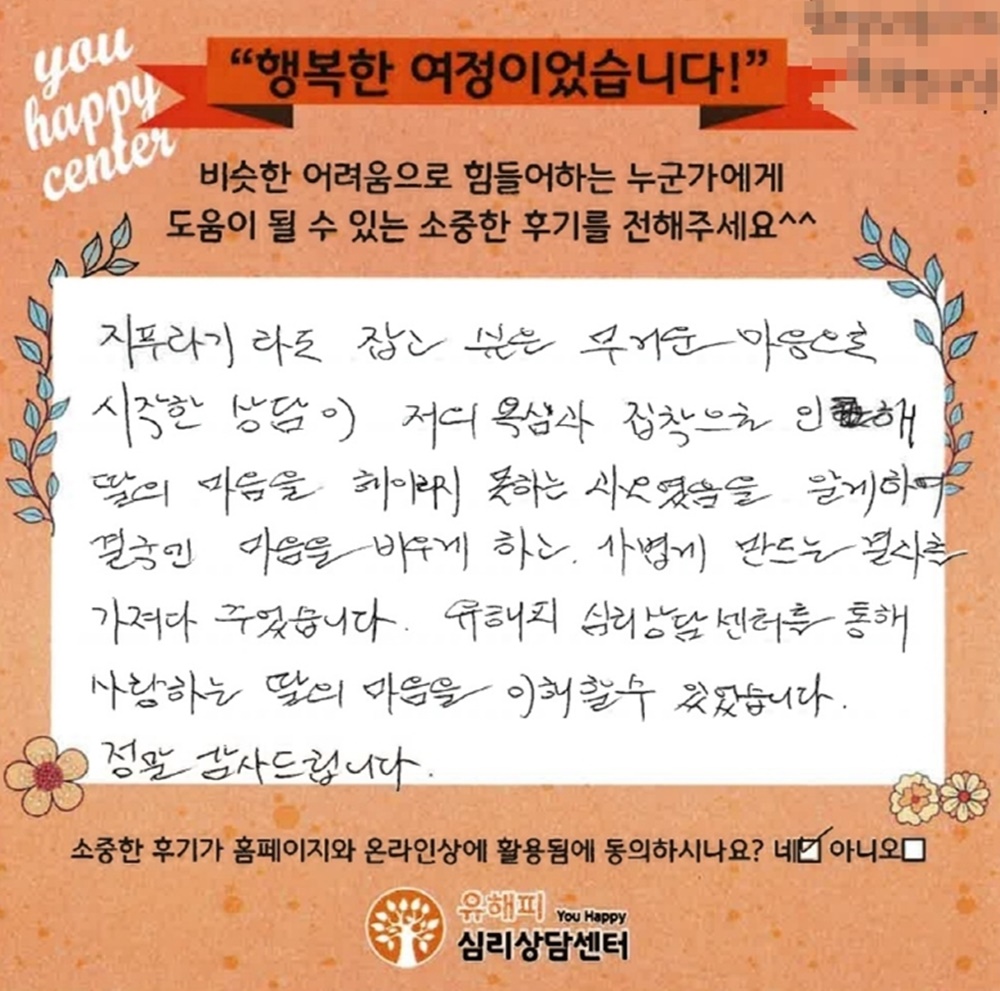 you
happy
center
“행복한 여정이었습니다!”
비슷한 어려움으로 힘들어하는 누군가에게
도움이 될 수 있는 소중한 후기를 전해주세요^^
지푸라기 라도 잡고 싶은 무거운 마음으로
시작한 상담이 저의 욕심과 집착으로 인해
딸의 마음을 헤아리지 못하는 사오였음을 알게하여
결국엔 마음을 비우게 하는. 가볍게 만드는 결과를
가져다 주었습니다. 유해피 심리상담센터를 통해
사랑하는 딸의 마음을 이해할수 있었습니다.
정말 감사드립니다.
소중한 후기가 홈페이지와 온라인상에 활용됨에 동의하시나요? 네☑ 아니오☐
유해피 You Happy
심리상담센터